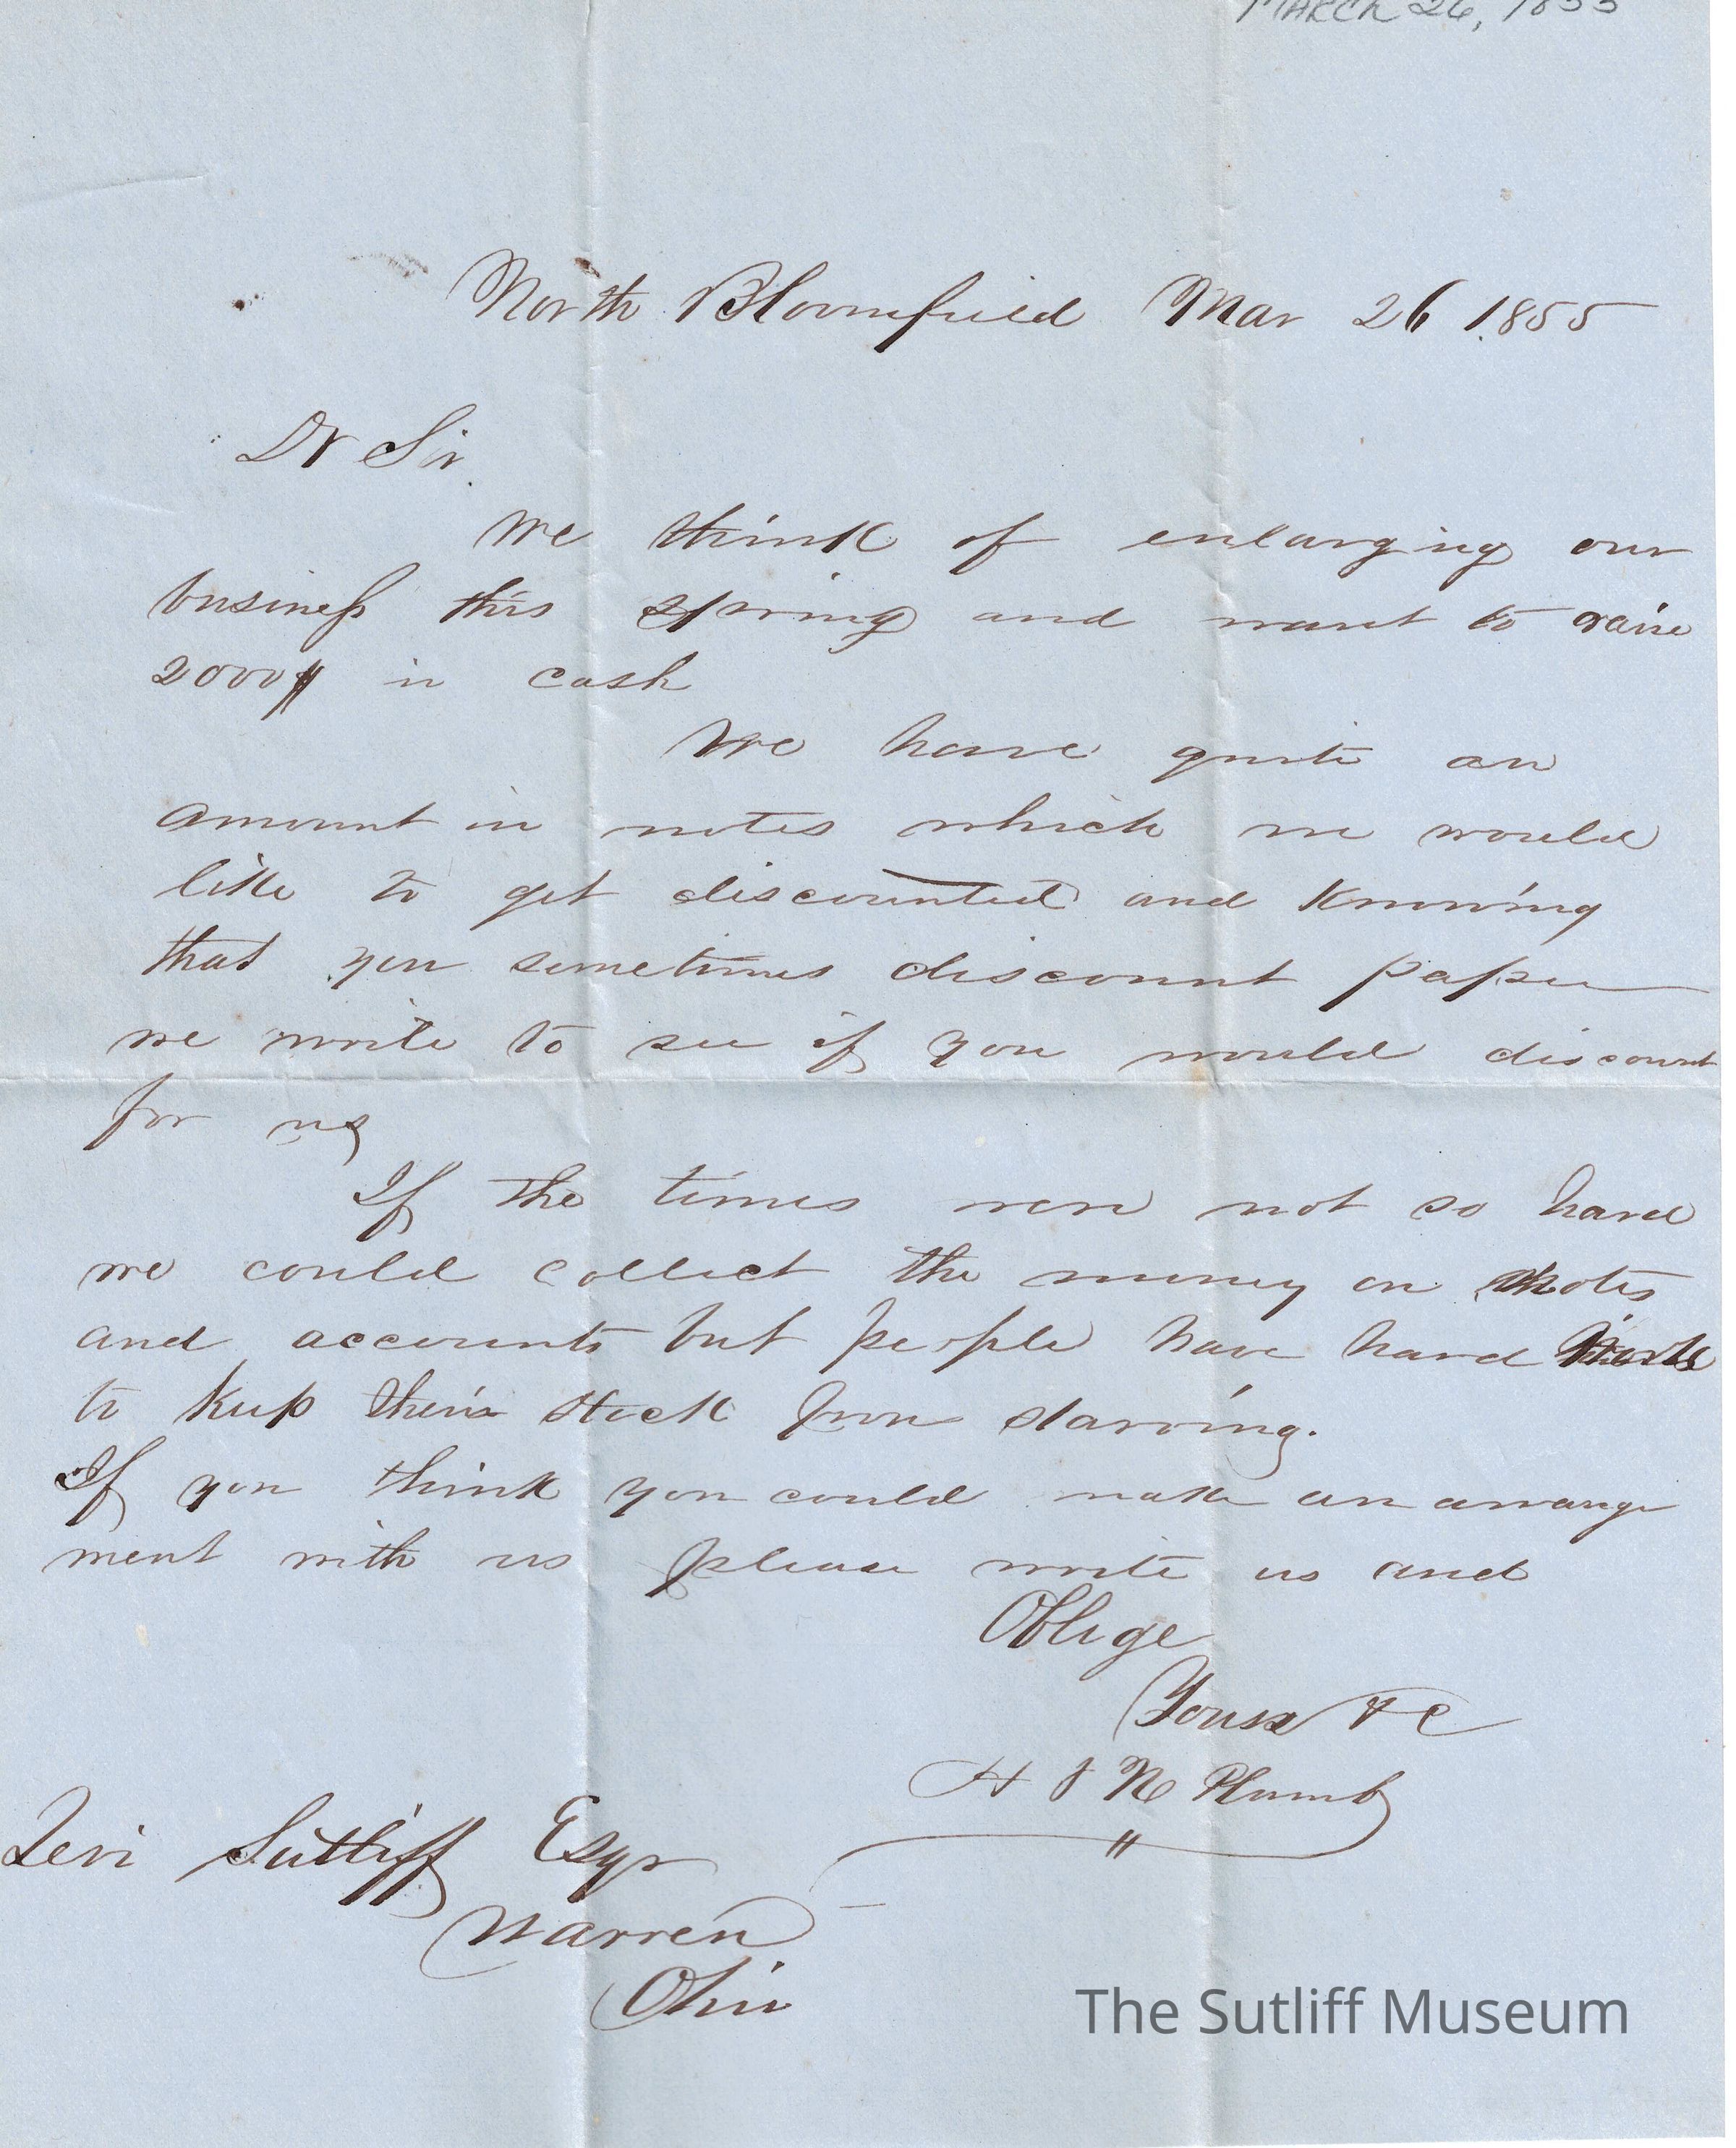 MARCH 26, 1855
North Bloomfield Mar 26 1855
Dr Sir
We think of enlarging our
business this spring and want to raise
2000$ in cash
We have quite an
amount in notes which we would
like to get discounted and knowing
that you sometimes discount paper
we write to see if you would discount
for us
If the times were not so hard
we could collect the money on notes
and accounts but people have hard work
to keep their stock from starving.
If you think you could make an arrange
ment with us please write us and
Oblige
Yours &c
H & N Plumb
Levi Sutliff Esqr
Warren
Ohio
The Sutliff Museum